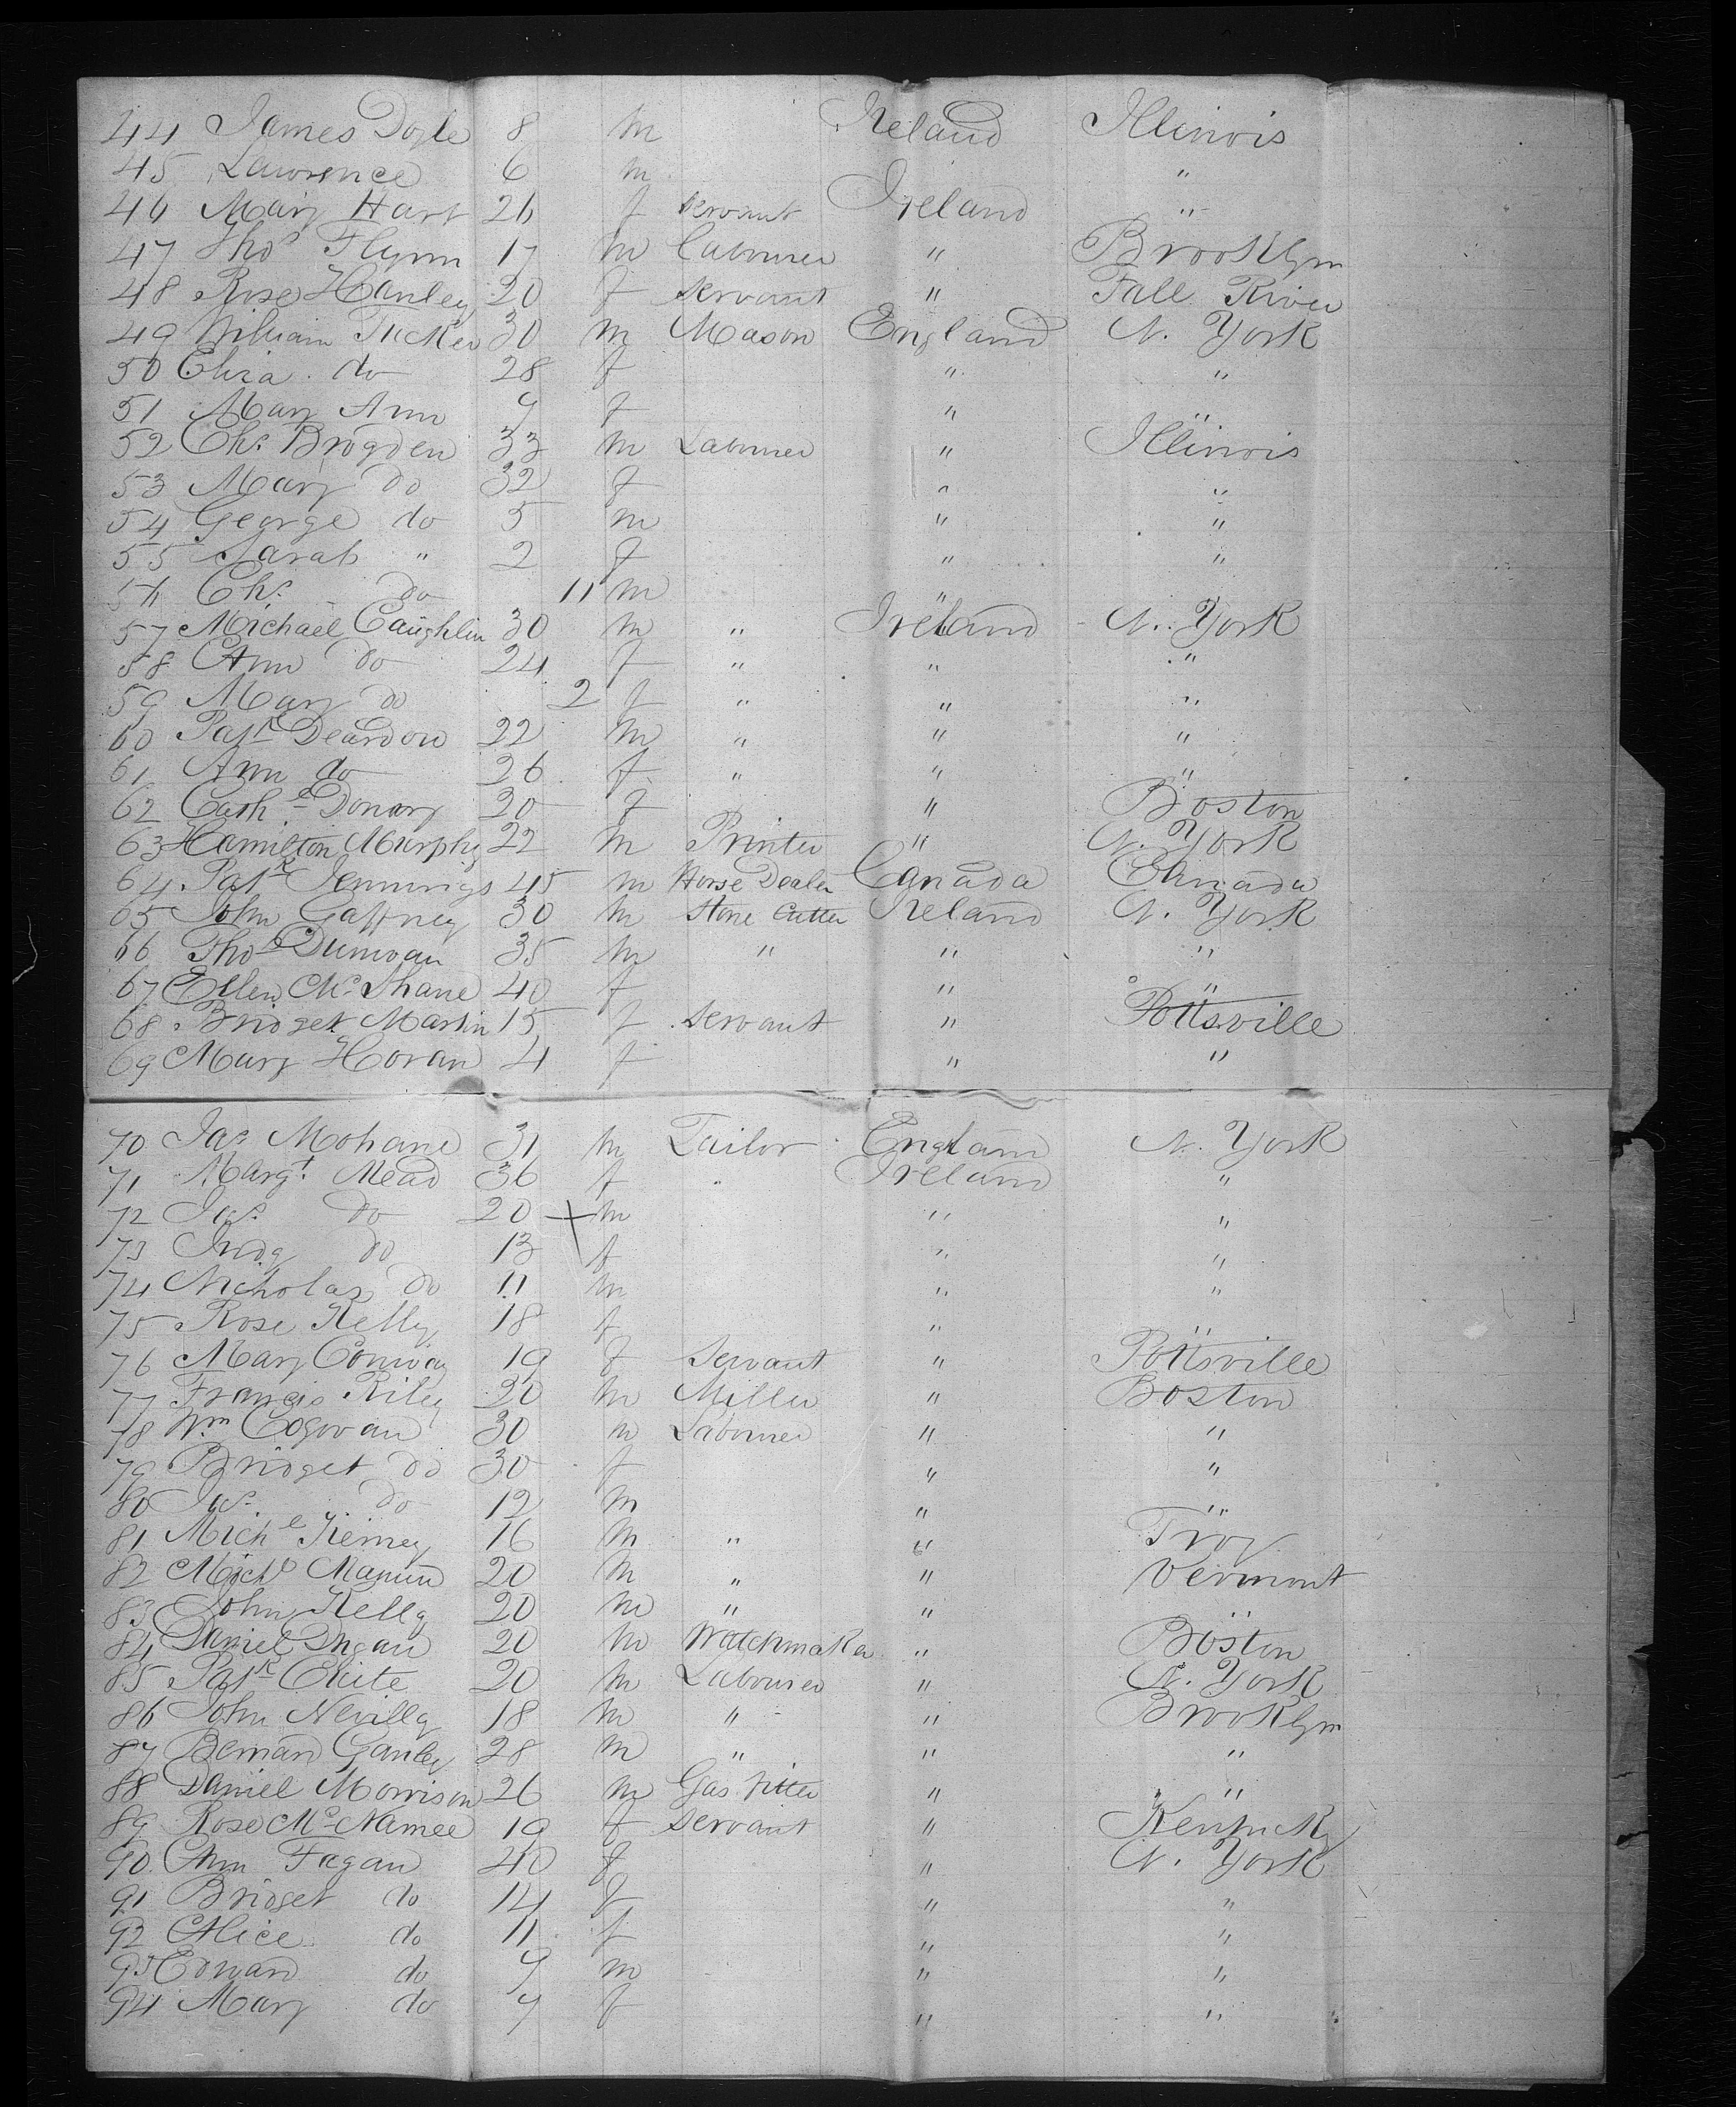 44 James Doyle 8 m Ireland Illinois
45 Lawrence 6 m "
46 Mary Hart 26 f Servant Ireland "
47 Thos Flynn 17 m Labourer " Brooklyn
48 Rose Hanley 20 f Servant " Fall River
49 William Tucker 30 m Mason England N. York
50 Eliza do 28 f " "
51 Mary Ann 9 f "
52 Chs. Brogden 33 m Labourer " Illinois
53 Mary do 32 f " "
54 George do 5 m " "
55 Sarah " 2 f " "
56 Chs. do 11 m "
57 Michael Caughlin 30 m " Ireland N. York
58 Ann do 24 f " " "
59 Mary do 2 f " " "
60 Patk Deardon 22 m " " "
61 Ann do 26 f " " "
62 Cathe 20 f " Boston
63 Hamilton Murphy 22 m Printer " N. York
64 Patk Jennings 45 m Horse Dealer Canada Canada
65 John Gaffney 30 m Stone Cutter Ireland N. York
66 Thos Dunvan 35 m " " "
67 Ellen McShane 40 f " "
68 Bridget Martin 15 f Servant " Pottsville
69 Mary Horan 4 f " "
70 Jas. Mohane 31 m Tailor England N. York
71 Margt. Mead 36 f " Ireland "
72 Jas. do 20 m " "
73 do 13 f " "
74 Nicholas do 11 m " "
75 Rose Kelly 18 f " "
76 Mary Conway 19 f Servant " Pottsville
77 Francis Riley 20 m Miller " Boston
78 Wm. Cogovan 30 m Labourer " "
79 Bridget do 30 f " "
80 Jas. do 12 m " "
81 Michl 16 m " " Troy
82 Michl 20 m " " Vermont
83 John Kelly 20 m " "
84 Daniel 20 m Watchmaker " Boston
85 Patk 20 m Labourer " N. York
86 John Nevilly 18 m " " Brooklyn
87 Bernard Ganley 28 m " " "
88 Daniel Morrison 26 m Gas fitter " "
89 Rose McNamee 19 f Servant " Kentucky
90 Ann Fagan 40 f " N. York
91 Bridget do 14 f " "
92 Alice do 11 f " "
93 Edward do 9 m " "
94 Mary do 7 f " "